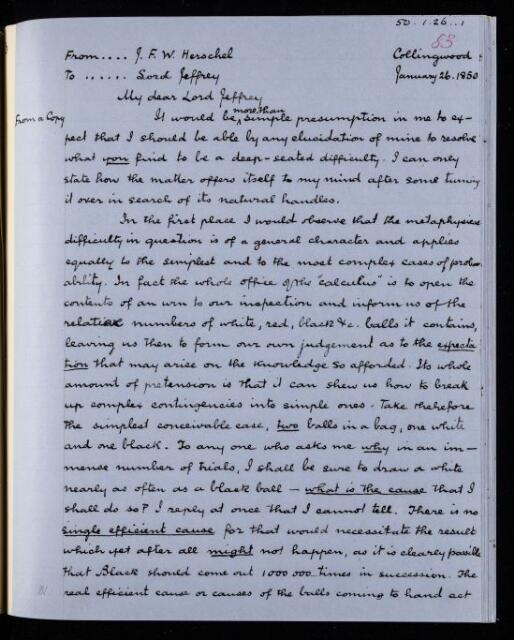 50.1.26..1
85
From.... J. F. W. Herschel
Collingwood
To ...... Lord Jeffrey
January 26. 1850
My dear Lord Jeffrey
From a Copy
It would be more than simple presumption in me to ex-
pect that I should be able by any elucidation of mine to resolve
what you find to be a deep-seated difficulty. I can only
state how the matter offers itself to my mind after some turning
it over in search of its natural handles.
In the first place I would observe that the metaphysical
difficulty in question is of a general character and applies
equally to the simplest and to the most complex cases of prob-
ability. In fact the whole office of this "calculus" is to open the
contents of an urn to our inspection and inform us of the
relative numbers of white, red, black &c. balls it contains,
leaving us then to form our own judgement as to the expecta
tion that may arise on the knowledge so afforded. Its whole
amount of pretension is that it can shew us how to break
up complex contingencies into simple ones. Take therefore
the simplest conceivable case, two balls in a bag, one white
and one black. To any one who asks me why in an im-
mense number of trials, I shall be sure to draw a white
nearly as often as a black ball — what is the cause that I
shall do so? I reply at once that I cannot tell. There is no
single efficient cause for that would necessitate the result
which yet after all might not happen, as it is clearly possible
that Black should come out 1000 000 times in succession. The
real efficient cause or causes of the balls coming to hand act